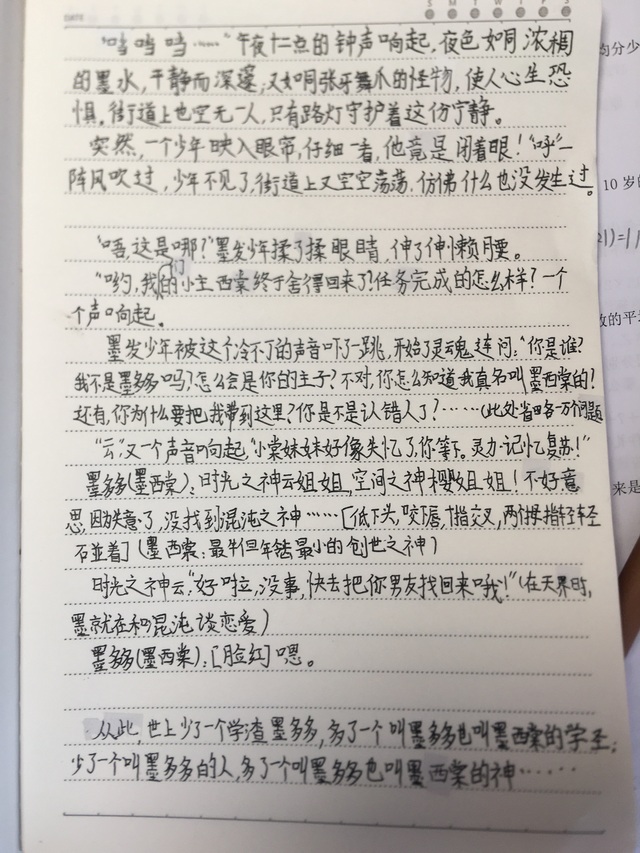 DATE
S M T W T F S
"当当当……"午夜十二点的钟声响起,夜色如同浓稠
的墨水,平静而深邃;又如同张牙舞爪的怪物,使人心生恐
惧。街道上也空无一人,只有路灯守护着这份宁静。
突然,一个少年映入眼帘,仔细一看,他竟是闭着眼!"呼"一
阵风吹过,少年不见了,街道上又空空荡荡,仿佛什么也没发生过。
"唔,这是哪?"墨发少年揉了揉眼睛,伸了伸懒腰。
"哟,我们的小主西棠终于舍得回来了?任务完成的怎么样?一个
个声响起。
墨发少年被这个冷不丁的声音吓了一跳,开始了灵魂连问:"你是谁?
我不是墨多多吗?怎么会是你的主子?不对,你怎么知道我真名叫墨西棠的?
还有,你为什么要把我带到这里?你是不是认错人了?……(此处省略多万个问题
"云,"又一个声音响起,"小棠妹妹好像失忆了,你等下。灵力·记忆复苏!"
墨多多(墨西棠):时光之神云姐姐,空间之神樱姐姐!不好意
思,因为失意了,没找到混沌之神……[低下头,咬下唇,十指交叉,两个拇指轻轻
(墨西棠:最牛但年龄最小的创世之神)
时光之神云:"好啦,没事,快去把你男友找回来哦!"(在天界时,
墨就在和混沌谈恋爱)
墨多多(墨西棠):[脸红]嗯。
从此,世上少了一个学渣墨多多,多了一个叫墨多多也叫墨西棠的学圣;
少了一个叫墨多多的人,多了一个叫墨多多也叫墨西棠的神……
均分少
10 岁的
数的平
来是